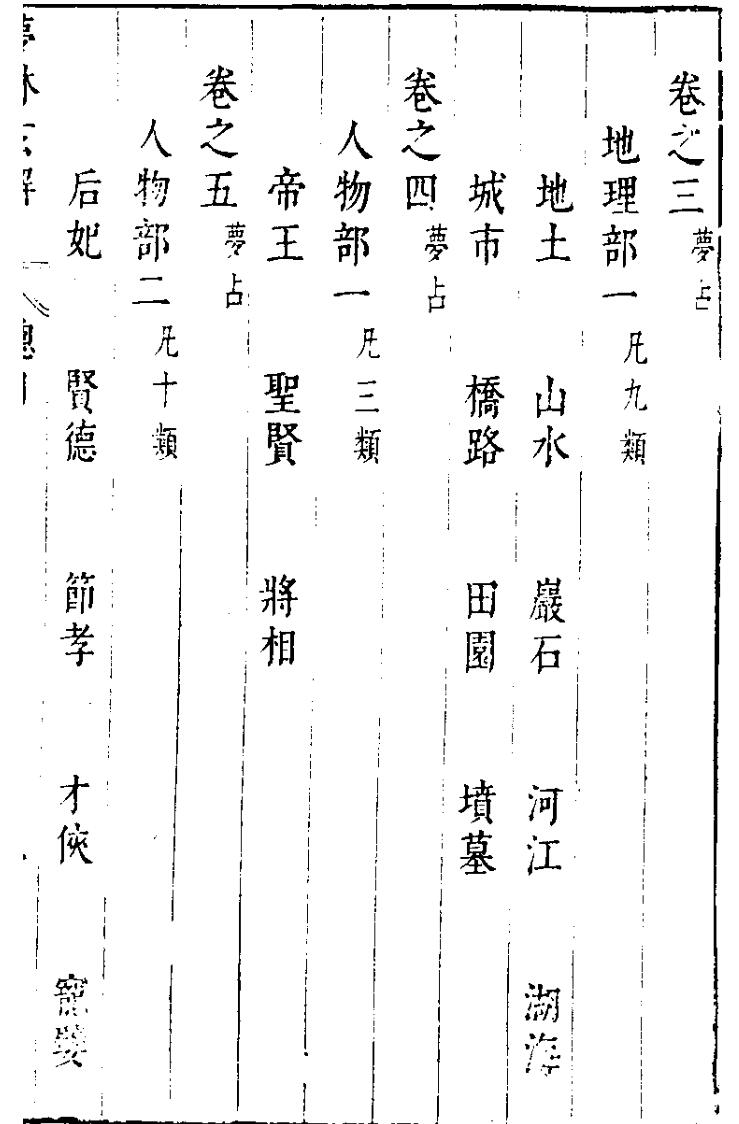 卷之三 夢占
地理部一 凡九類
地土 山水 巖石 河江 湖海
城市 橋路 田園 墳墓
卷之四 夢占
人物部一 凡三類
帝王 聖賢 將相
卷之五 夢占
人物部二 凡十類
后妃 賢德 節孝 才俠 寵嬖